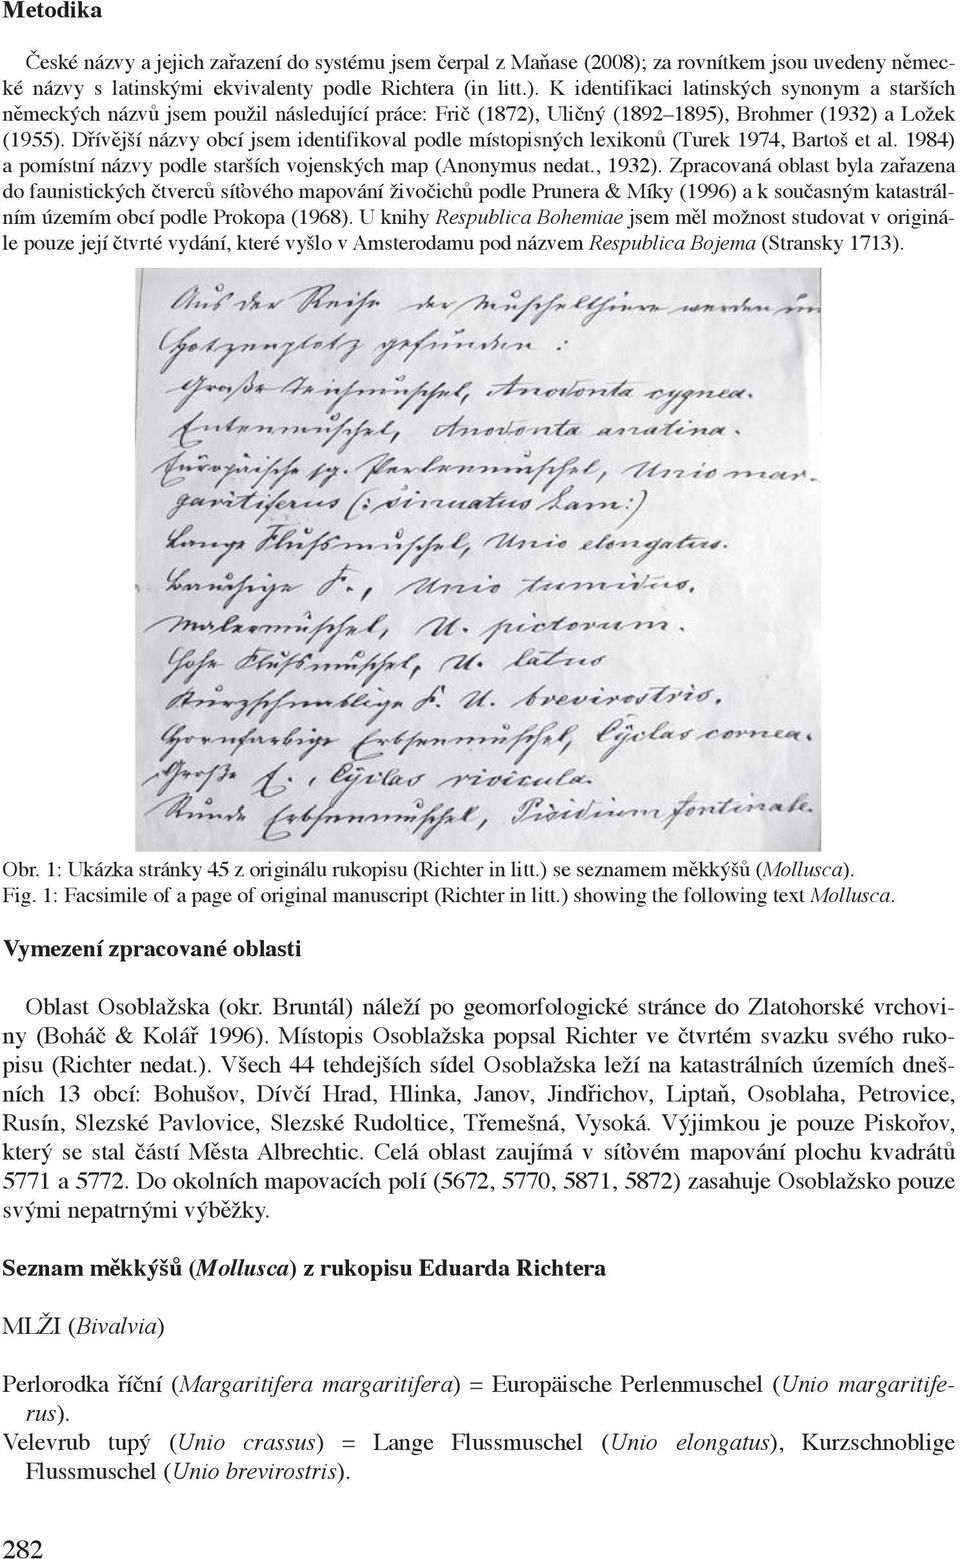 Metodika
České názvy a jejich zařazení do systému jsem čerpal z Maňase (2008); za rovnítkem jsou uvedeny němec-
ké názvy s latinskými ekvivalenty podle Richtera (in litt.). K identifikaci latinských synonym a starších
německých názvů jsem použil následující práce: Frič (1872), Uličný (1892–1895), Brohmer (1932) a Ložek
(1955). Dřívější názvy obcí jsem identifikoval podle místopisných lexikonů (Turek 1974, Bartoš et al. 1984)
a pomístní názvy podle starších vojenských map (Anonymus nedat., 1932). Zpracovaná oblast byla zařazena
do faunistických čtverců síťového mapování živočichů podle Prunera & Míky (1996) a k současným katastrál-
ním územím obcí podle Prokopa (1968). U knihy Respublica Bohemiae jsem měl možnost studovat v originá-
le pouze její čtvrté vydání, které vyšlo v Amsterodamu pod názvem Respublica Bojema (Stransky 1713).
Aus der Reihe der Muschelthiere werden im
Hotzenplotz gefunden :
Große Teichmuschel, Anodonta cygnea.
Entenmuschel, Anodonta anatina.
Europäische sg. Perlenmuschel, Unio mar-
garitiferus (: sinuatus Lam:)
Lange Flußmuschel, Unio elongatus.
Bauchige F., Unio tumidus.
Malermuschel, U. pictorum.
Hohe Flußmuschel, U. latus
Kurzschnablige F. U. brevirostris.
Hornfarbige Erbsenmuschel, Cyclas cornea.
Große E., Cyclas rivicula.
Runde Erbsenmuschel, Pisidium fontinale.
Obr. 1: Ukázka stránky 45 z originálu rukopisu (Richter in litt.) se seznamem měkkýšů (Mollusca).
Fig. 1: Facsimile of a page of original manuscript (Richter in litt.) showing the following text Mollusca.
Vymezení zpracované oblasti
Oblast Osoblažska (okr. Bruntál) náleží po geomorfologické stránce do Zlatohorské vrchovi-
ny (Boháč & Kolář 1996). Místopis Osoblažska popsal Richter ve čtvrtém svazku svého ruko-
pisu (Richter nedat.). Všech 44 tehdejších sídel Osoblažska leží na katastrálních územích dneš-
ních 13 obcí: Bohušov, Dívčí Hrad, Hlinka, Janov, Jindřichov, Liptaň, Osoblaha, Petrovice,
Rusín, Slezské Pavlovice, Slezské Rudoltice, Třemešná, Vysoká. Výjimkou je pouze Piskořov,
který se stal částí Města Albrechtic. Celá oblast zaujímá v síťovém mapování plochu kvadrátů
5771 a 5772. Do okolních mapovacích polí (5672, 5770, 5871, 5872) zasahuje Osoblažsko pouze
svými nepatrnými výběžky.
Seznam měkkýšů (Mollusca) z rukopisu Eduarda Richtera
MLŽI (Bivalvia)
Perlorodka říční (Margaritifera margaritifera) = Europäische Perlenmuschel (Unio margaritife-
rus).
Velevrub tupý (Unio crassus) = Lange Flussmuschel (Unio elongatus), Kurzschnoblige
Flussmuschel (Unio brevirostris).
282